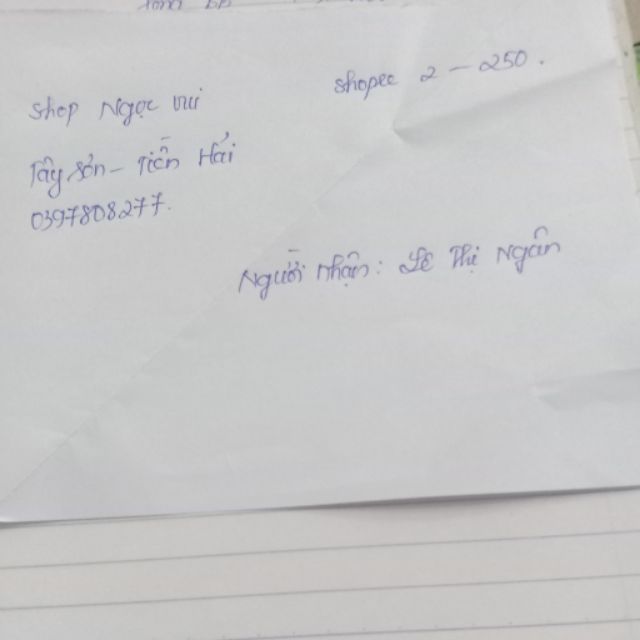 Shopee 2 - 250.
Shop Ngọc
Tây Sơn - Tiền Hải
0397808277.
Người nhận: Lê Thị Ngân